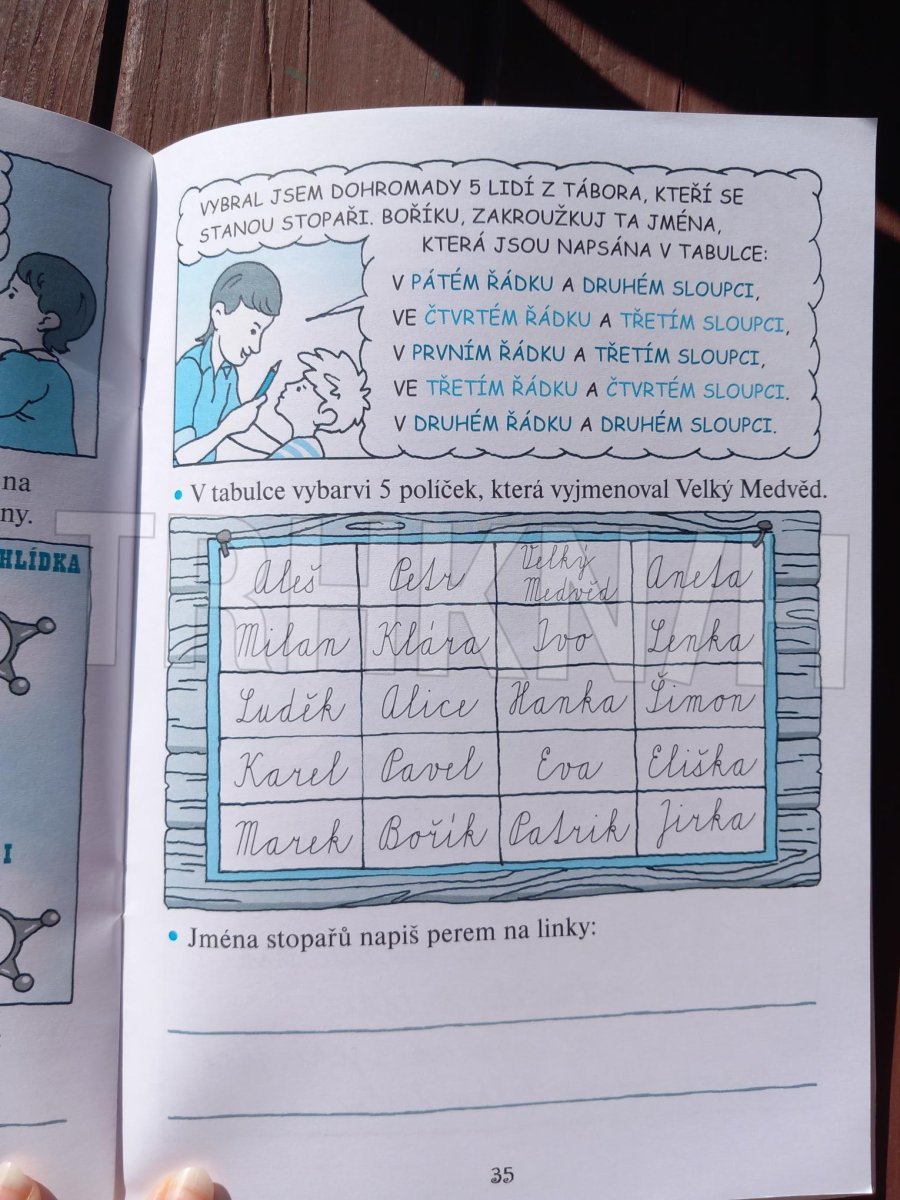 VYBRAL JSEM DOHROMADY 5 LIDÍ Z TÁBORA, KTEŘÍ SE
STANOU STOPAŘI. BOŘÍKU, ZAKROUŽKUJ TA JMÉNA,
KTERÁ JSOU NAPSÁNA V TABULCE:
V PÁTÉM ŘÁDKU A DRUHÉM SLOUPCI,
VE ČTVRTÉM ŘÁDKU A TŘETÍM SLOUPCI,
V PRVNÍM ŘÁDKU A TŘETÍM SLOUPCI,
VE TŘETÍM ŘÁDKU A ČTVRTÉM SLOUPCI.
V DRUHÉM ŘÁDKU A DRUHÉM SLOUPCI.
na
ny.
HLÍDKA
I
• V tabulce vybarvi 5 políček, která vyjmenoval Velký Medvěd.
TRHKNIH
Aleš Petr Velký Medvěd Aneta
Milan Klára Ivo Lenka
Luděk Alice Hanka Šimon
Karel Pavel Eva Eliška
Marek Bořík Patrik Jirka
• Jména stopařů napiš perem na linky:
35